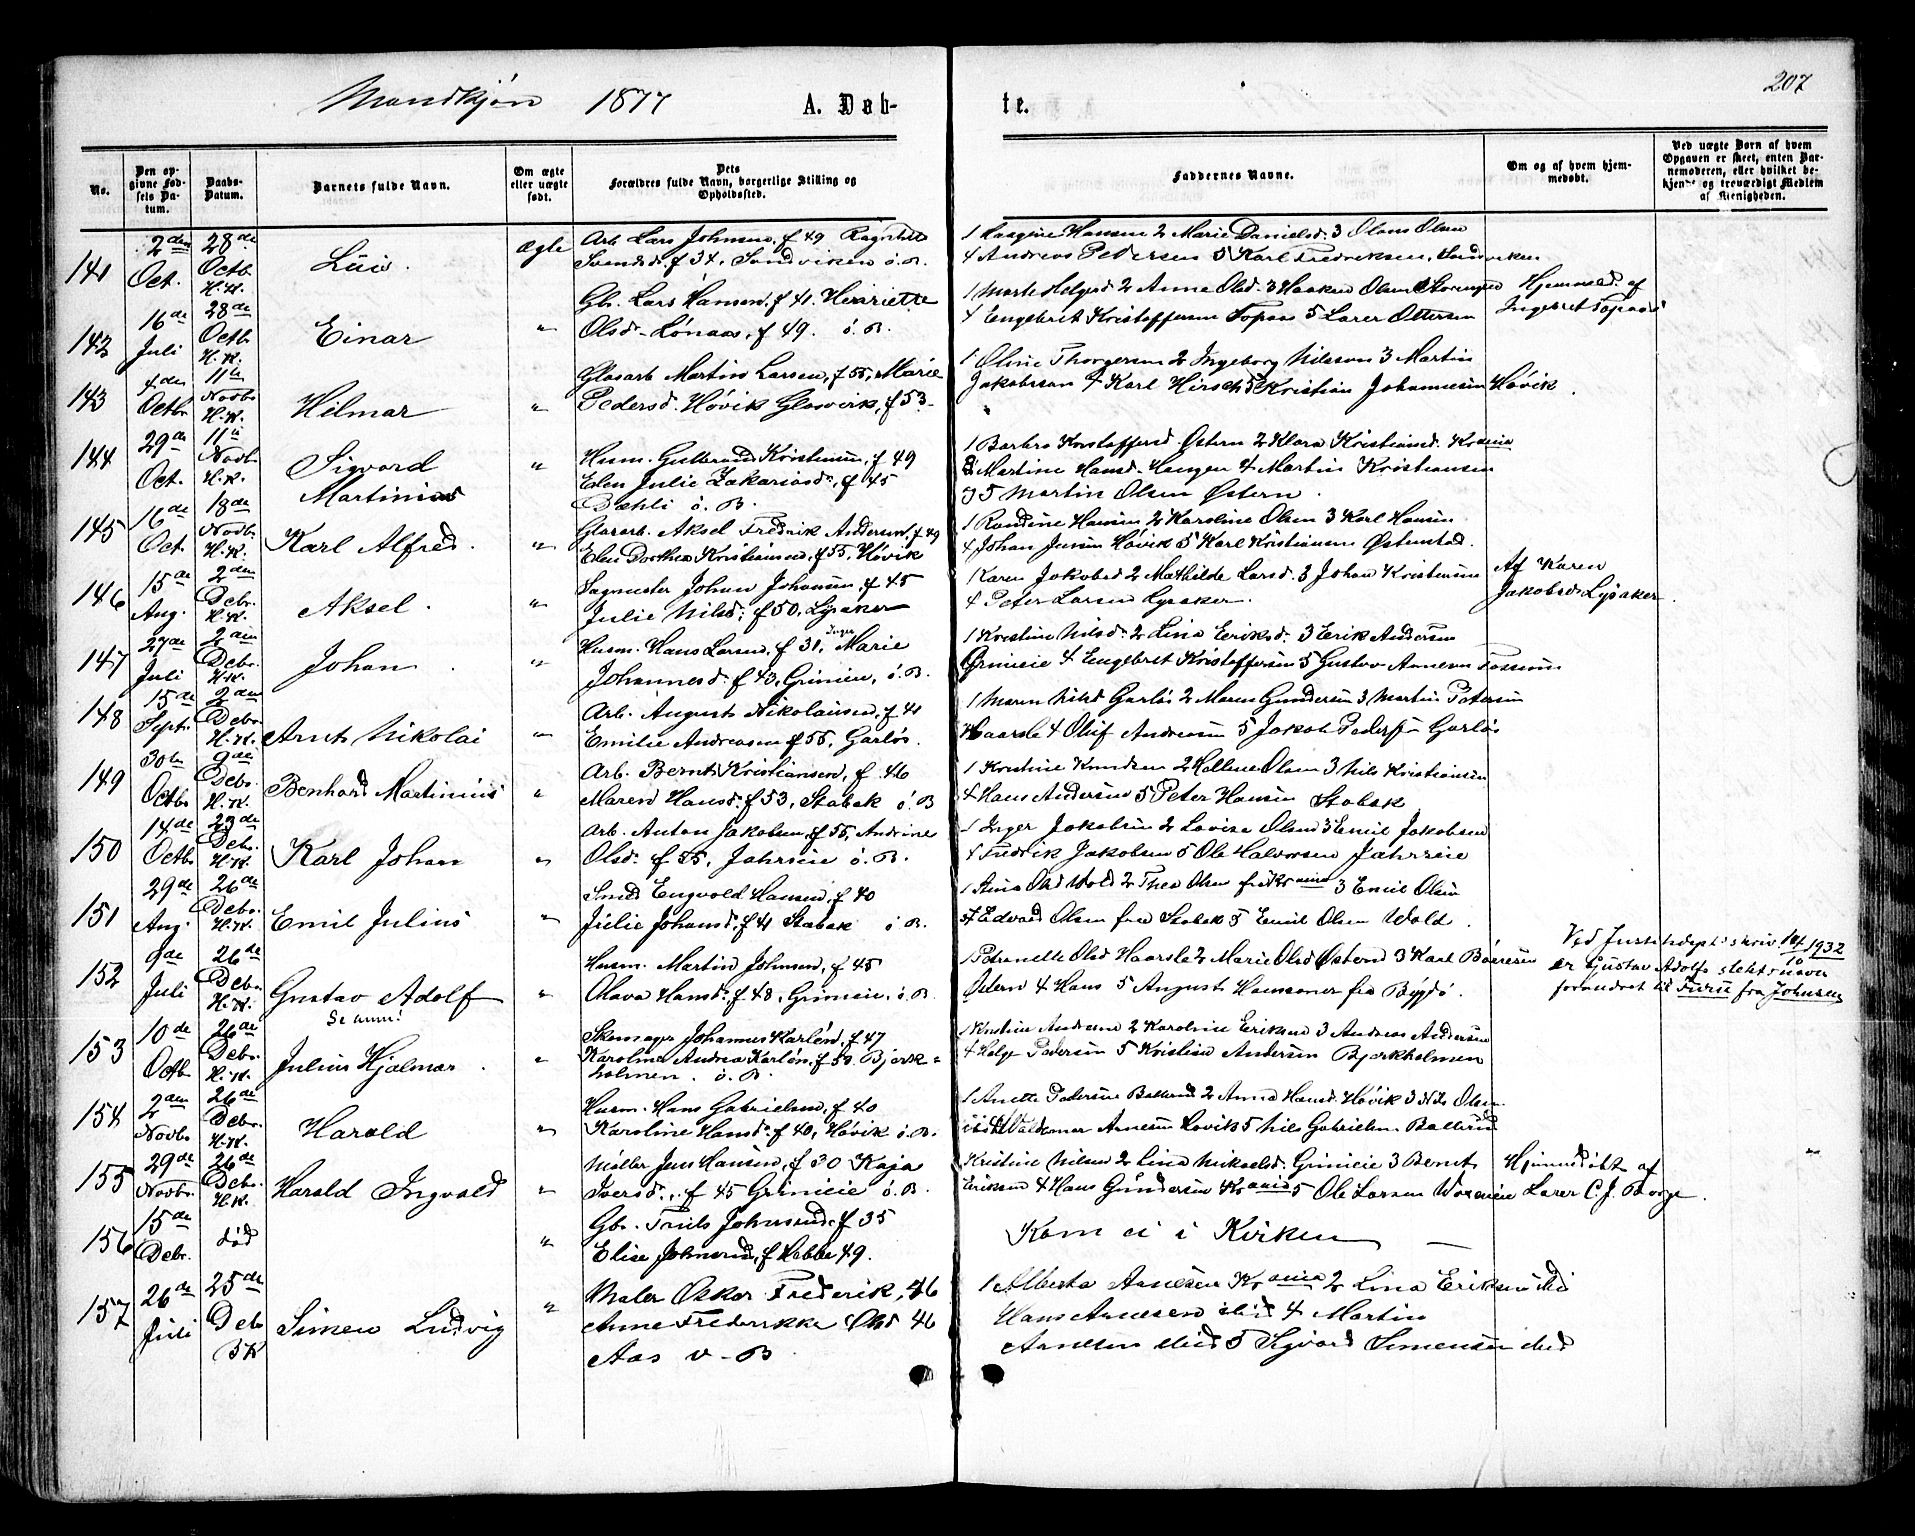 Mandkjøn 1877 A. Døb-
te.
207
No.
Den opgivne Fødsels Datum.
Daabs-Datum.
Barnets fulde Navn.
Om ægte eller uægte født.
Dets Forældres fulde Navn, borgerlige Stilling og Opholdssted.
Faddernes Navne.
Om og af hvem hjemmedøbt.
Ved uægte Børn af hvem Opgaven er skeet, enten Barnemoderen, eller hvilket bekjendt og troværdigt Medlem af Menigheden.
141 2den Oct. 28de Octb. H.K. ægte
Arb. Lars Johnsen, f 49
Svendsd. f 34, Sandviken ö. B.
Hansen 2 Marie Danielsd. 3 Olaus Olsen
4 Andreas Pedersen 5 Karl Fredriksen, Sandviken
142 16de Juli 28de Octb. H.K. Einar "
Gb. Lars Hansen, f 41. Henriette
Olsd. Lønaas, f 49. ö. B.
1 Marte Helgesd 2 Anne Olsd. 3 Haaken Olsen
4 Engebret Kristoffersen Topaas 5 Lærer Ottersen
Hjemmed. af
Ingebret Topaas
143 4de Octb. 11te Novb. H.K. Hilmar "
Glasarb. Martin Larsen, f 55, Marie
Pedersd. Høvik Glasværk, f 53
1 Oline Thorgersen 2 Ingeborg Nilsson 3 Martin
Jakobsson 4 Karl Hirsch 5 Kristian Johannesen Høvik.
144 29de Oct. 11te Novb. H.K. Sigvard Martinius "
Husm. Gulbrand Kristiansen, f 49
Elen Julie Zakariasd. f 45
Dæhli ö. B.
1 Barbro Kristoffersd. Østern 2 Klara Kristiansd. Krania
3 Martine Hansd. Haugen 4 Martin Kristiansen
5 Martin Olsen Østern.
145 16de Oct. 18de Novb. H.K. Karl Alfred. "
Glasarb. Aksel Fredrik Andersen, f 49
Elen Dorthea Kristiansen, f 55, Høvik
1 Randine Hansen 2 Karoline Olsen 3 Karl Hansen
4 Johan Jensen Høvik 5 Karl Kristiansen Østenstad.
146 15de Aug. 2den Debr. H.K. Aksel. "
Sagmester Johan Johansen, f 45
Julie Nilsd: f 50, Lysaker
1 Karen Jakobsd 2 Mathilde Larsd. 3 Johan Kristiansen
4 Peter Larsen Lysaker.
Af Karen
Jakobsd. Lysaker.
147 27de Juli 2den Debr. H.K. Johan. "
Husm. Hans Larsen, f 31, Inger Marie
Johannesd. f 43, Grinien, ö. B.
1 Kristine Nilsd. 2 Lina Eriksd. 3 Erik Andersen
Grinieie 4 Engebret Kristoffersen 5 Gustav Arnesen Fossum
148 15de Septr. 2den Debr. H.K. Arnt Nikolai "
Arb. August Nikolaisen, f 41
Emilie Andreasen f 55, Garløs.
1 Maren Nilsd Garløs 2 Maren Gundersen 3 Martin Petersen
Haarsle 4 Oluf Andreasen 5 Jakob Pedersen Garløs
149 30te Octb. 9de Debr. H.K. Benhard Martinius "
Arb. Bernt Kristiansen, f 46
Maren Hansd. f 53, Stabæk ö. B
1 Kristine Knudsen 2 Hellene Olsen 3 Nils Kristiansen
4 Hans Andersen 5 Peter Hansen Stabæk
150 14de Octb. 23de Debr. H.K. Karl Johan "
Arb. Anton Jakobsen, f 55, Andrine
Olsd. f 55, Jahreie ö. B.
1 Inger Jakobsen 2 Lovise Olsen 3 Emil Jakobsen
4 Fredrik Jakobsen 5 Ole Halvorsen Jahreie
151 29de Aug. 26de Debr. H.K. Emil Julius "
Smed Engvold Hansen, f 40
Julie Johansd. f 41 Stabæk ö B.
1 Stina Olsd Wold 2 Thea Olsen fra Krania 3 Emil Olsen
4 Edvard Olsen fra Stabæk 5 Emil Olsen Wold.
152 9de Juli 26de Debr. H.K. Gustav Adolf "
Se anm!
Husm. Martin Johnsen, f 45
Olava Hansd. f 48, Grinieie, ö. B.
1 Petronelle Olsd Haarsle 2 Marie Olsd Østern 3 Karl
Østern 4 Hans 5 August Hansener fra Bygdö.
Ved Justisdept's skriv. 19/10 1932
er Gustav Adolfs slektsnavn
forandret til Furu fra Johnsen
153 10de Octb. 26de Debr. H.K. Julius Hjalmar. "
Skomager Johannes Karlén, f 47
Karoline Andrea Karlén, f 50. Bjerk-
holmen. ö. B.
1 Kristine Andersen 2 Karoline Eriksen 3 Andreas Andersen
4 Helge Pedersen 5 Kristine Andersen Bjerkholmen
154 2den Novb. 26de Debr. H.K. Harald "
Husm. Hans Gabrielsen, f 40
Karoline Hansd. f 40, Høvik ö. B.
1 Anette Pedersen Ballerud 2 Anna Hansd. Høvik 3 Nils Olsen
4 Valdemar Arnesen Høvik 5 Nils Gabrielsen Ballerud
155 29de Novbr. 26de Debr. H.K. Harald Ingvald "
Møller Jens Hansen, f 30 Kaja
Iversd. f 45 Grinieie ö. B.
Kristine Nilsen 2 Lina Mikaelsd. Grinieie 3 Bernt
Eriksen 4 Hans Gundersen Krania 5 Ole Larsen
Hjemmedøbt af
Lærer C. J. Borge.
156 15de Debr. død "
Gbr. Truls Johnsrud, f 35
Elise Johnsrud, f Hobbe 49.
Kom ei i Kirken —
157 26de Juli 25de Deb Simen Ludvig "
Maler Oskar Frederik, 46
Anne Frederikke Olsd 46
Aas v - B.
1 Alberta Arnesen Krania 2 Lina Eriksen
Hans Arnesen 4 Martin
Arnesen 5 Sigvard Simensen